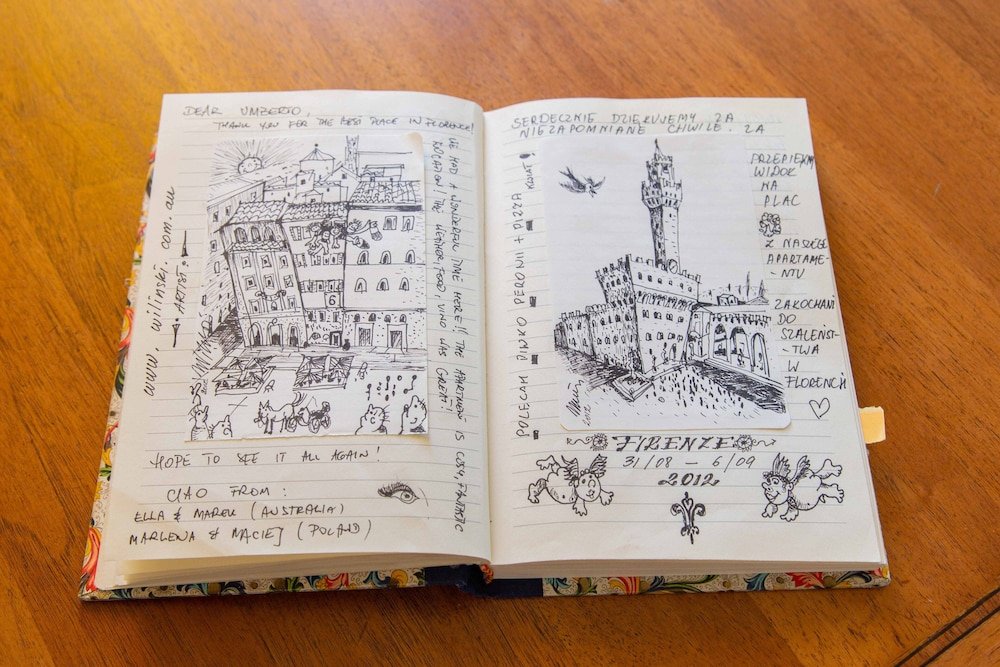 DEAR UMBERTO,
THANK YOU FOR THE BEST PLACE IN FLORENCE!
WE HAD A WONDERFUL TIME HERE!! THE APARTMENT IS COSY, FANTASTIC
LOCATION! THE WETHER, FOOD, VINO WAS GREAT!!
www.wilinski.com.au
ARTIST
6
HOPE TO SEE IT ALL AGAIN!
CIAO FROM:
ELLA & MAREK (AUSTRALIA)
MARLENA & MACIEJ (POLAND)
SERDECZNIE DZIĘKUJEMY ZA
NIEZAPOMNIANE CHWILE. ZA
PRZEPIĘKNY
WIDOK
NA
PLAC
Z NASZEGO
APARTAME-
-NTU
ZAKOCHANI
DO
SZALEŃS-
-TWA
W
FLORENCJI
POLECAM PIWKO PERONII + PIZZA KWIAT!
FIRENZE
31/08 - 6/09
2012